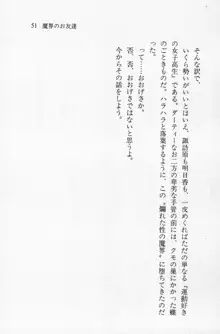 51 魔界のお友達
そんな訳で、
いくら勢いがいいとはいえ、諏訪原も明日香も、一皮めくればただの単なる『運動好き
の女子高生』である。ダーティーなお二方の辛劣な手管の前に、クモの巣にかかった蝶
のごときものだ。ハラハラと落葉するように、この〝爛れた性の魔界〟に堕ちてきたのだ
った。
って……おおげさか。
否、否、おおげさではないと思うよ。
今からその話をしよう。